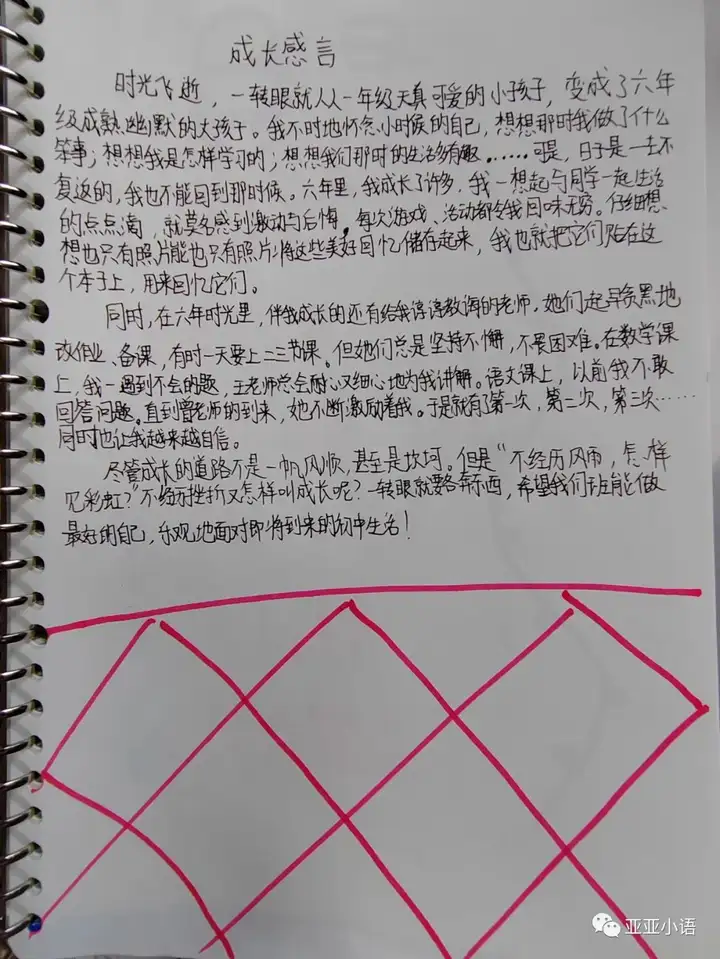 成长感言
时光飞逝，一转眼就从从一年级天真可爱的小孩子，变成了六年
级成熟幽默的大孩子。我不时地怀念小时候的自己，想想那时我做了什么
笨事；想想我是怎样学习的；想想我们那时的生活多有趣……可是，日子是一去不
复返的，我也不能回到那时候。六年里，我成长了许多，我一想起与同学一起生活
的点点滴，就莫名感到激动与后悔。每次游戏、活动都令我回味无穷。仔细想
想也只有照片能也只有照片将这些美好回忆储存起来，我也就把它们贴在这
个本子上，用来回忆它们。
同时，在六年时光里，伴我成长的还有给我谆谆教诲的老师，她们起早贪黑地
改作业、备课，有时一天要上二三节课。但她们总是坚持不懈，不畏困难。在数学课
上，我一遇到不会的题，王老师总会耐心又细心地为我讲解。语文课上，以前我不敢
回答问题。直到曾老师的到来，她不断激励着我。于是就有了第一次，第二次，第三次……
同时也让我越来越自信。
尽管成长的道路不是一帆风顺，甚至是坎坷。但是“不经历风雨，怎样
见彩虹？”不经历挫折又怎样叫成长呢？一转眼就要各奔东西，希望我们班能做
最好的自己，乐观地面对即将到来的初中生活！
亚亚小语